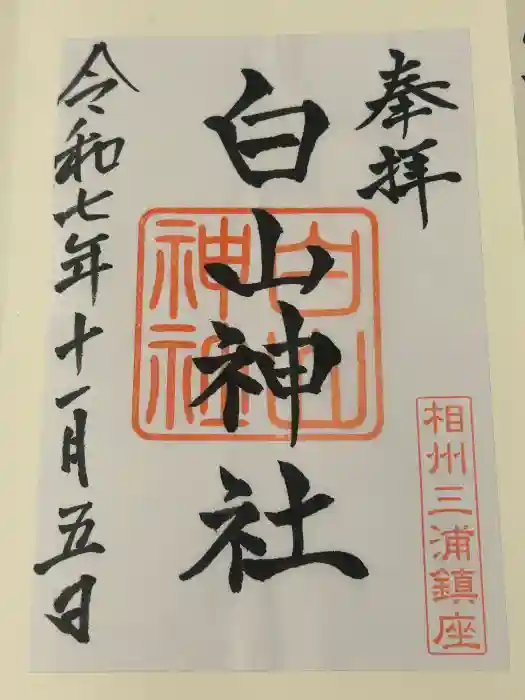 奉拝
白山神社
白山
神社
相州三浦鎮座
令和七年十一月五日